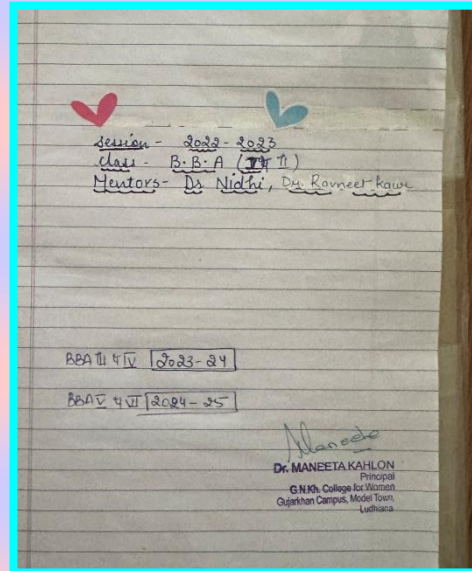 Session - 2022-2023
Class - B.B.A (I & II)
Mentors- Dr Nidhi, Dr. Ravneet Kaur
BBA III & IV 2023-24
BBA V & VI 2024-25
Maneeta
Dr. MANEETA KAHLON
Principal
G.N.Kh. College for Women
Gujarkhan Campus, Model Town,
Ludhiana